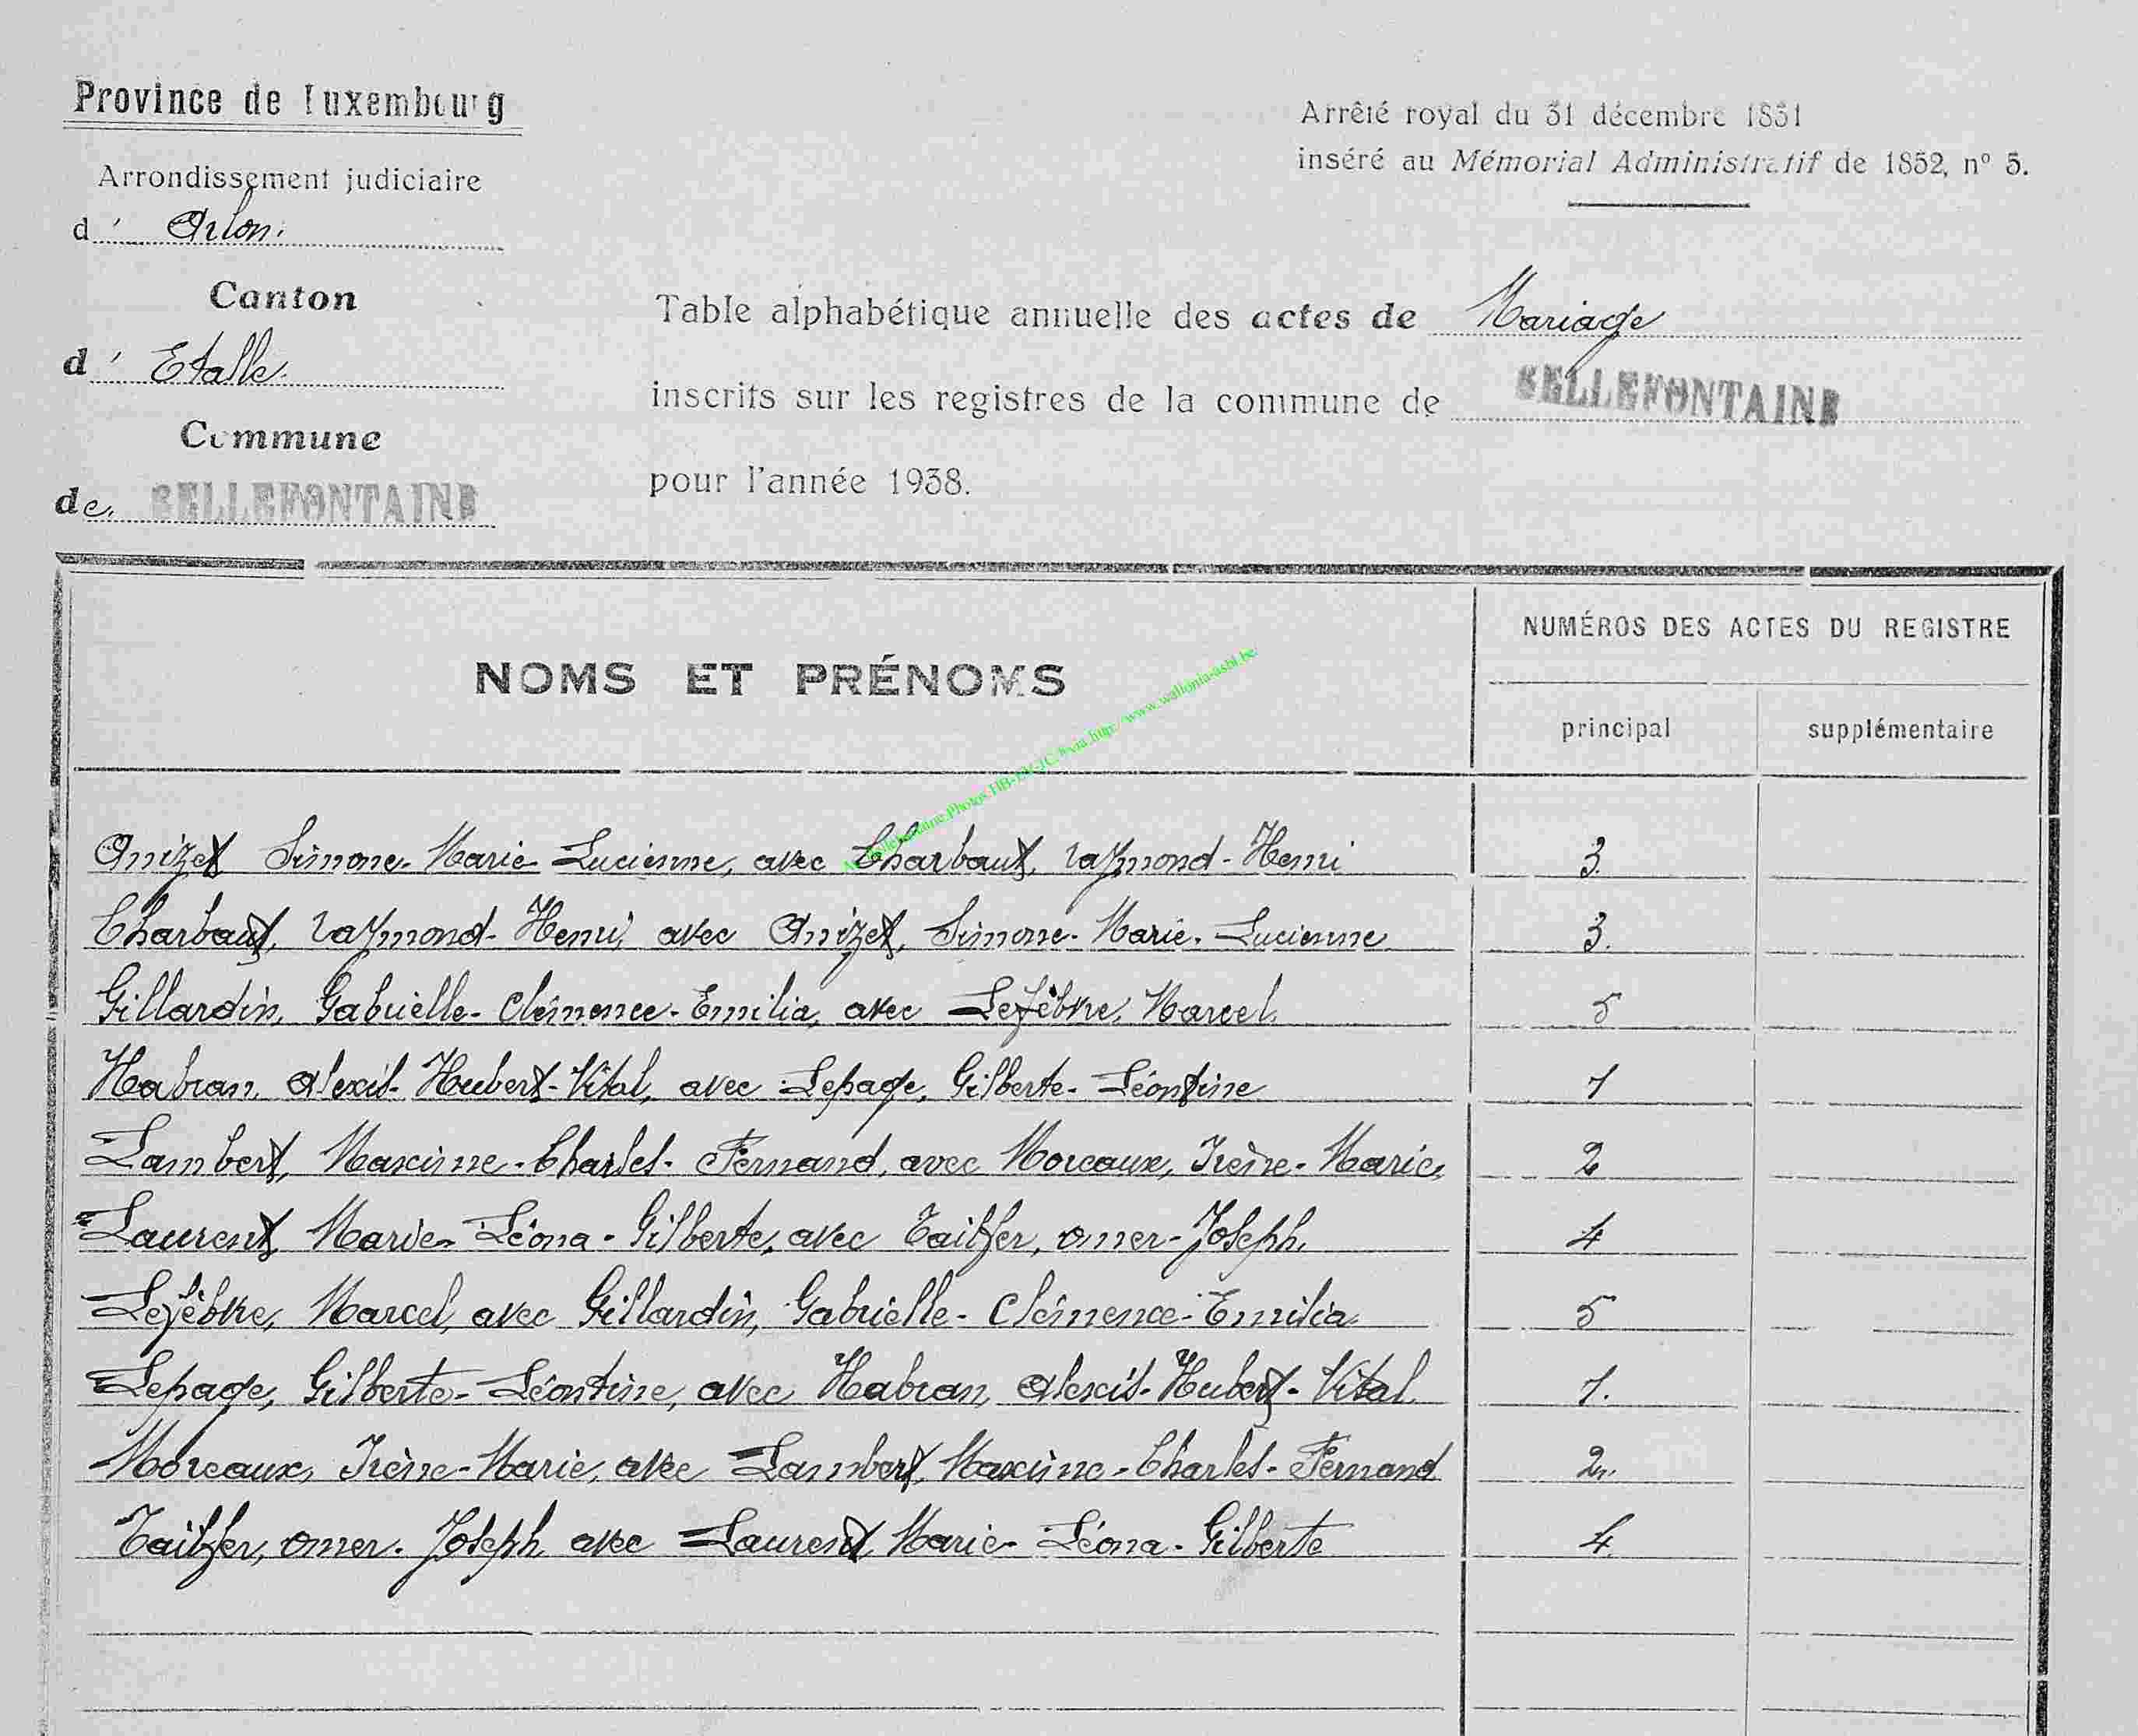 Province de Luxembourg
Arrêté royal du 31 décembre 1831
inséré au Mémorial Administratif de 1832, nº 5.
Arrondissement judiciaire
d' Arlon.
Canton
d' Etalle.
Commune
de. BELLEFONTAINE
Table alphabétique annuelle des actes de Mariage
inscrits sur les registres de la commune de BELLEFONTAINE
pour l'année 1938.
NOMS ET PRÉNOMS
NUMÉROS DES ACTES DU REGISTRE
principal supplémentaire
http://www.wallonia-asbl.be/
Anizet Simone-Marie-Lucienne, avec Charbaut, raymond-Henri 3.
Charbaut, raymond-Henri, avec Anizet, Simone-Marie-Lucienne 3.
Gillardin, Gabrielle-Clémence-Emilia, avec Lefèbvre, Marcel. 5
Habran, Alexis-Hubert-Vital, avec Lepage, Gilberte-Léontine 1
Lambert, Maxime-Charles-Fernand, avec Moreaux, Irène-Marie. 2
Laurent, Marie-Léona-Gilberte, avec omer-Joseph. 4
Lefèbvre, Marcel, avec Gillardin, Gabrielle-Clémence-Emilia. 5
Lepage, Gilberte-Léontine, avec Habran, Alexis-Hubert-Vital. 1.
Moreaux, Irène-Marie, avec Lambert, Maxime-Charles-Fernand 2.
omer-Joseph avec Laurent, Marie-Léona-Gilberte 4.